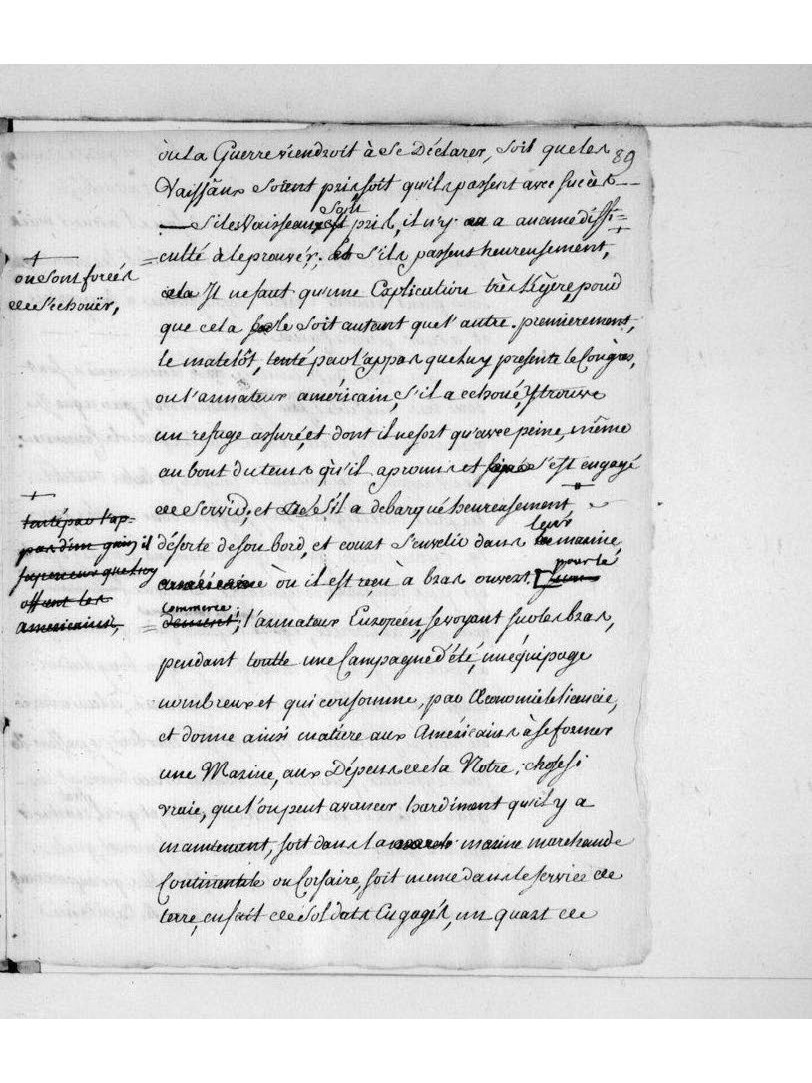 89
où la Guerre viendroit à se Déclarer, soit que les
Vaissāux soient pris, soit qu'ils passent avec succès
Si le Vaisseau soit pris, il n'y a aucune diffi=
=culté à le prouver; et s'ils passent heureusement,
ou sont forcés
de s'echouër,
Il ne faut qu'une Explication très légère, pour
que cela le soit autant que l'autre. premierement,
le matelôt, tenté par l'appas que luy presente le Congrès,
ou l'armateur américain, s'il a echoué, y trouve
un refuge assuré, et dont il ne sort qu'avec peine, même
au bout du tems qu'il a promis et s'est engagé
de servir; et s'il a debarqué heureusement,
tenté par l'ap-
pas d'un gain
superieur que luy
offrent les
americains,
il déserte de son bord, et court s'envelir dans leur marine
où il est reçu à bras ouvert. pour le
=commerce; l'armateur Européen, se voyant sur les bras,
pendant toutte une Campagne d'été, un équipage
nombreux et qui consomme, par Œconomie le licencie,
et donne ainsi matiere aux Américains à se former
une Marine, aux Dépens de la Notre; chose si
vraie, que l'on peut avancer hardiment qu'il y a
maintenant, soit dans la marine marchande
Continentale ou Corsaire, soit meme dans le service de
terre, en fait de soldats Engagés, un quart de